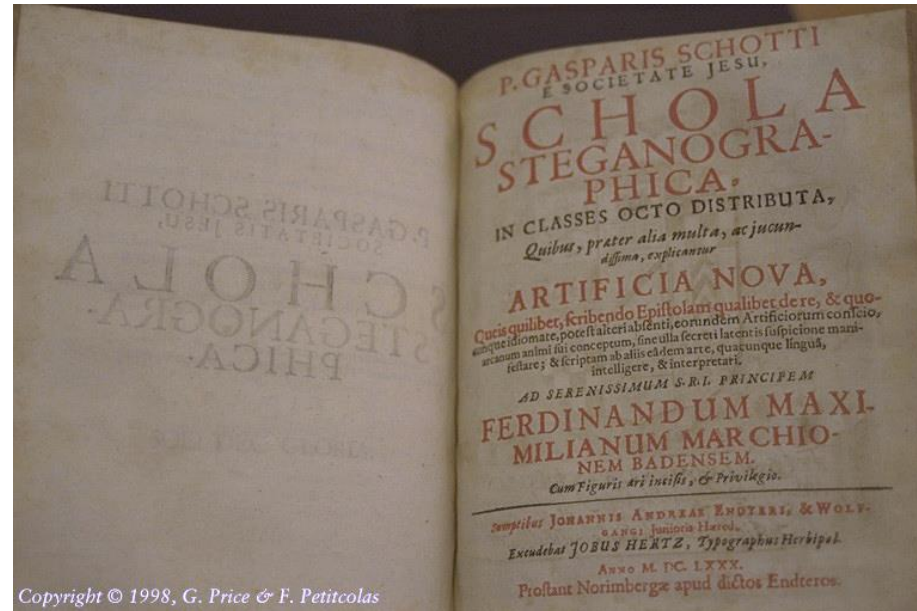 P. GASPARIS SCHOTTI
SOCIETATIS JESU,
SCHOLA
STEGANOGRA-
PHICA.
P. GASPARIS SCHOTTI
E SOCIETATE JESU,
SCHOLA
STEGANOGRA-
PHICA.
IN CLASSES OCTO DISTRIBUTA,
Quibus, præter alia multa, ac jucun-
dissima, explicantur
ARTIFICIA NOVA,
Queis quilibet, scribendo Epistolam qualibet de re, & quo-
cunque idiomate, potest alteri absenti, eorundem Artificiorum conscio,
arcanum animi sui conceptum, sine ulla secreti latentis suspicione mani-
festare; & scriptam ab aliis eâdem arte, quacunque linguâ,
intelligere, & interpretari.
AD SERENISSIMUM S.R.I. PRINCIPEM
FERDINANDUM MAXI-
MILIANUM MARCHIO-
NEM BADENSEM.
Cum Figuris æri incisis, & Privilegio.
Sumptibus JOHANNIS ANDREAE ENDTERI, & WOLF-
GANGI Junioris Hæred.
Excudebat JOBUS HERTZ, Typographus Herbipol.
ANNO M. DC. LXXX.
Prostant Norimbergæ apud dictos Endteros.
Copyright © 1998, G. Price & F. Petitcolas